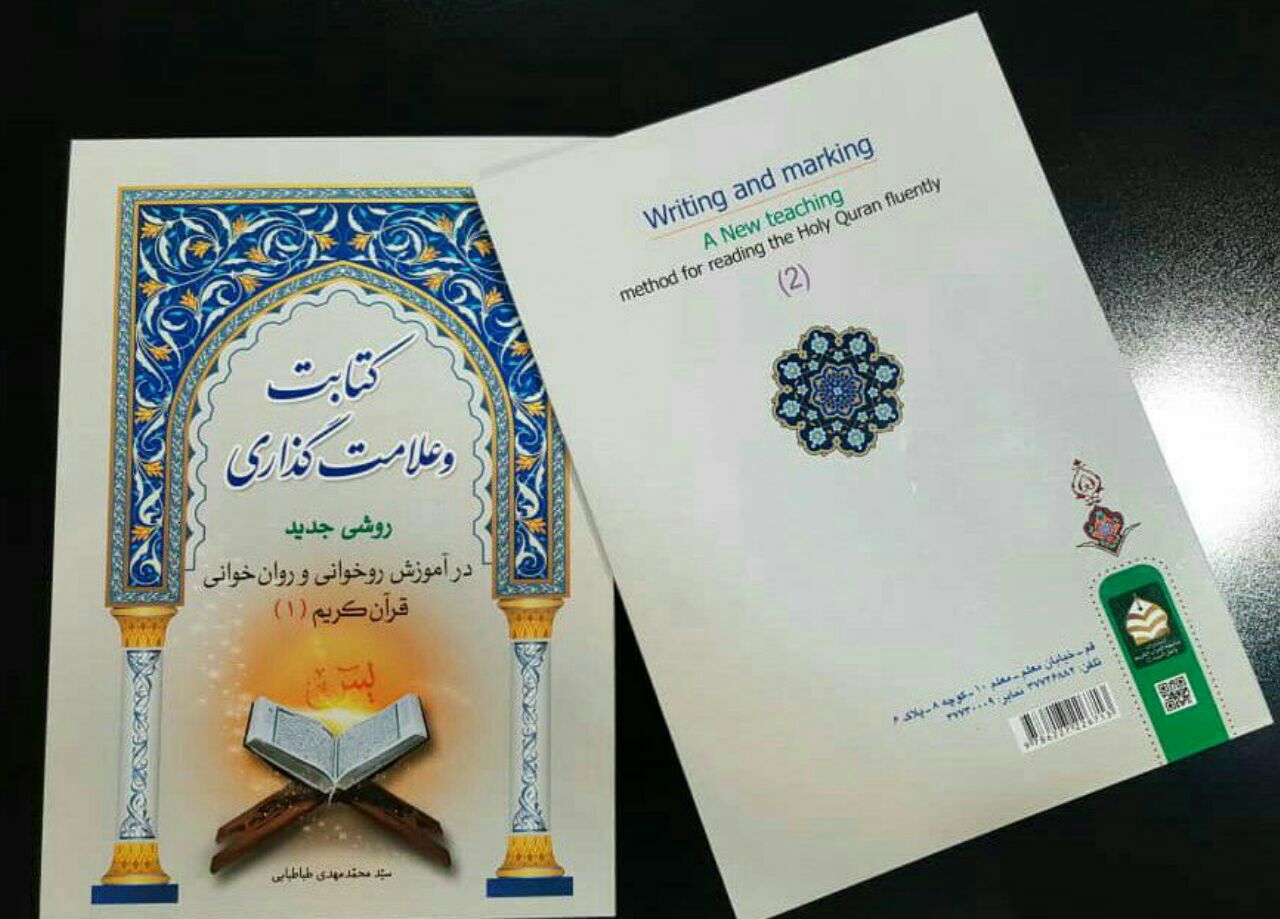 کتابت
وعلامت گذاری
روشی جدید
در آموزش روخوانی و روان خوانی
قرآن کریم (۱)
سیّد محمّدمهدی طباطبایی
Writing and marking
A New teaching
method for reading the Holy Quran fluently
(2)
قم - خیابان معلم - معلم ۱۰ - کوچه ۸ - پلاک ۶
تلفن: ۳۷۷۴۶۸۸۲ نمابر: ۳۷۷۳۰۰۰۹